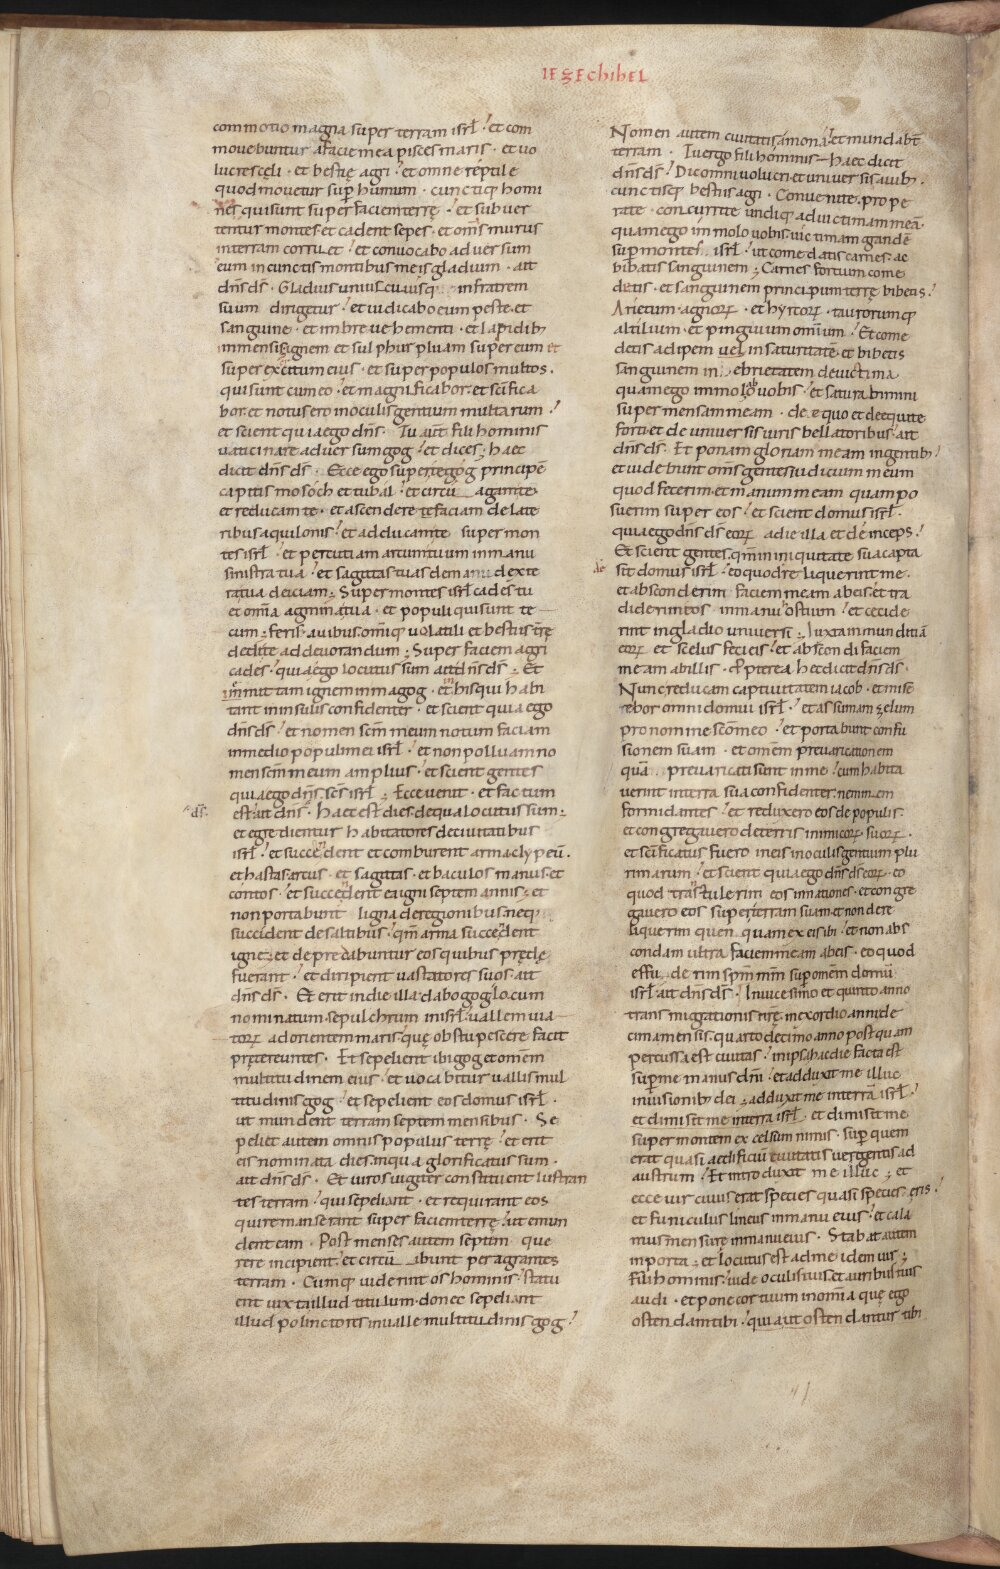 IEZEChIhEL
commotio magna super terram isrł et com
movebuntur afacie mea pisces maris · et vo
lucres cęli · et bestię agri et omne reptile
quod movetur sup humum · cunctiq; homi
nes qui sunt super faciem terrę et subver
tentur montes et cadent sepes · et om̄s murus
in terram corruet et convocabo adversum
eum in cunctis montibus meis gladium · ait
dn̄s ds̄ · Gladius uniuscuiusq; in fratrem
suum dirigetur et iudicabo eum peste · et
sanguine · et imbre vehementi · et lapidib;
immensis ignem et sulphur pluam super eum et
super exercitum eius · et super populos multos ·
qui sunt cum eo et magnificabor · et sc̄ifica
bor · et notus ero in oculis gentium multarum
et scient quia ego dn̄s · Tu aut̄ fili hominis
vaticinare adversum gog et dices · haec
dicit dn̄s ds̄ · Ecce ego super te gog principē
capitis mosoch et tubal et circū agam te
et reducam te · et ascendere te faciam de late
ribus aquilonis et adducam te super mon
tes isrł et percutiam arcum tuum in manu
sinistra tua et sagittas tuas de manu dexte
ra tua deiciam · Super montes isrł cades tu
et omīa agmina tua · et populi qui sunt te
cum · feris · avibus · omniq; volatili et bestiis trę
dedi te ad devorandum · Super faciem agri
cades · quia ego locutus sum ait dn̄s ds̄ · Et
immittam ignem in magog · et in his qui habi
tant in insulis confidenter · et scient quia ego
dn̄s ds̄ et nomen sc̄m meum notum faciam
in medio populi mei isrł et non polluam no
men sc̄m meum amplius et scient gentes
quia ego dn̄s sc̄s isrł · Ecce venit · et factum
est ait dn̄s · haec est dies de qua locutus sum ·
ds̄
et egredientur habitatores de civitatibus
isrł et succendent et comburent arma clypeū ·
et hastas arcus · et sagittas · et baculos manus et
contos et succendent ea igni septem annis · et
non portabunt ligna de regionibus neq;
succident de saltibus qm̄ arma succendent
igne · et depredabuntur eos quibus prędę
fuerant et diripient vastatores suos ait
dn̄s ds̄ · Et erit in die illa dabo gog locum
nominatum sepulchrum in isrł vallem via
torꝝ ad orientem maris quę obstupescere facit
prętereuntes · Et sepelient ibi gog et omem
multitudinem eius et vocabitur vallis mul
titudinis gog et sepelient eos domus isrł ·
ut mundent terram septem mensibus · Se
peliet autem omnis populus terrę et erit
eis nominata dies in qua glorificatus sum ·
ait dn̄s ds̄ · Et viros iugiter constituent lustran
tes terram qui sepeliant · et requirant eos
qui remanserant super faciem terrę ut emun
dent eam · Post menses autem septem que
rere incipient et circū ibunt peragrantes
terram · Cumq; viderint os hominis statu
ent iuxta illud titulum · donec sepeliant
illud pollinctores in valle multitudinis gog
Nomen autem civitatis amona et mundabt̄
terram · Tu ergo fili hominis haec dicit
dn̄s ds̄ Dic omni volucri et universis avib;
cunctisq; bestiis agri · Convenite, prope
rate · concurrite undiq; ad victimam meā
quam ego immolo vobis · victimam grandē
sup montes isrł ut comedatis carnes · ac
bibatis sanguinem · Carnes fortium come
detis · et sanguinem principum terrę bibetis
Arietum · agnorꝝ · et hyrcorꝝ · taurorumq;
altilium · et pinguium omnium Et come
detis adipem vel in saturitatē · et bibetis
sanguinem in ebrietatem de victima
quam ego immolabo vobis et saturabimini
super mensam meam · de equo et de equite
forti et de universis viris bellatoribus ait
dn̄s ds̄ · Et ponam gloriam meam in gentib;
et videbunt om̄s gentes iudicium meum
quod fecerim · et manum meam quam po
suerim super eos et scient domus isrł ·
quia ego dn̄s ds̄ eorꝝ a die illa et deinceps
Et scient gentes qm̄ in iniquitate sua capta
sit domus isrł eo quod reliquerint me ·
de
et absconderim faciem meam ab eis · et tra
diderim eos in manu hostium et cecide
rint in gladio universi · Iuxta inmunditiā
eorꝝ et scelus feci eis et abscondi faciem
meam ab illis · Ppterea hec dicit dn̄s ds̄ ·
Nunc reducam captivitatem iacob · et mise
rebor omni domui isrł et assumam zelum
pro nomine sc̄o meo et portabunt confu
sionem suam · et omēm prevaricationem
quā prevaricati sunt in me cum habita
verint in terra sua confidenter neminem
formidantes et reduxero eos de populis
et congregavero de terris inimicorꝝ suorꝝ ·
et sc̄ificatus fuero in eis in oculis gentium plu
rimarum et scient quia ego dn̄s ds̄ eorꝝ · eo
quod transtulerim eos in nationes · et congre
gavero eos super terram suam et non dere
liquerim quenquam ex eis ibi et non abs
condam ultra faciem meam ab eis · eo quod
effuderim spm̄ mm̄ sup omēm domū
isrł ait dn̄s ds̄ In vicesimo et quinto anno
transmigrationis nrę · in exordio anni de
cima mensis · quarto decimo anno postquam
percussa est civitas in ipsa hac die facta est
sup me manus dnī et adduxit me illuc
in visionib; dei · adduxit me in terrā isrł
et dimisit me in terra isrł · et dimisit me
super montem excelsum nimis · sup quem
erat quasi aedificiū civitatis vergentis ad
austrum Et introduxit me illuc · et
ecce vir cuius erat species quasi species eris
et funiculus lineus in manu eius et cala
mus mensurę in manu eius · Stabat autem
in porta · et locutus est ad me idem vir ·
Fili hominis vide oculis tuis et auribus tuis
audi · et pone cor tuum in om̄ia quę ego
ostendam tibi quia ut ostendantur tibi